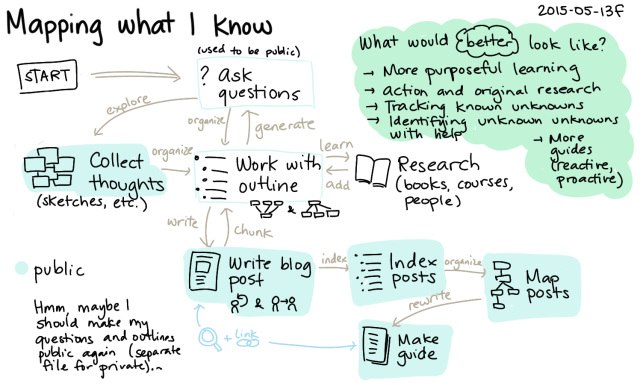 Mapping what I Know
2015-05-13F
START
(used to be public)
? ask
questions
What would better look like?
→ More purposeful learning
→ action and original research
→ Tracking known unknowns
→ Identifying unknown unknowns
with help
→ More
guides
(reactive,
proactive)
explore
organize
generate
Collect
thoughts
(sketches, etc.)
organize
Work with
outline
&
learn
add
Research
(books, courses,
people)
write
chunk
public
Write blog
post
&
index
Index
posts
organize
Map
posts
rewrite
Hmm, maybe I
should make my
questions and outlines
public again (separate
file for private)...
+ link
Make
guide